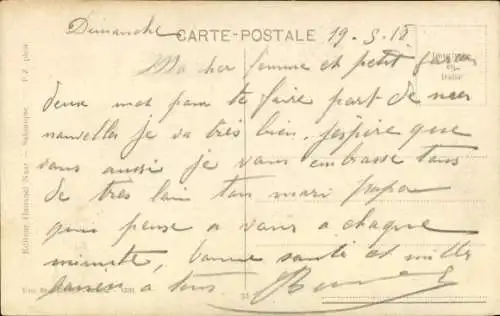 Dimanche CARTE-POSTALE 19-5-18
Ma cher femme et petit
deux mot pour te faire part de mes
nouvelles je va très bien. j'espère que
vous aussi je vous embrasse tous
de très loin ton mari papa
qui pense a vous a chaque
minute, bonne santé et mille
a tous
Editeur Hananel Naar — Salonique P. Z. phot
31